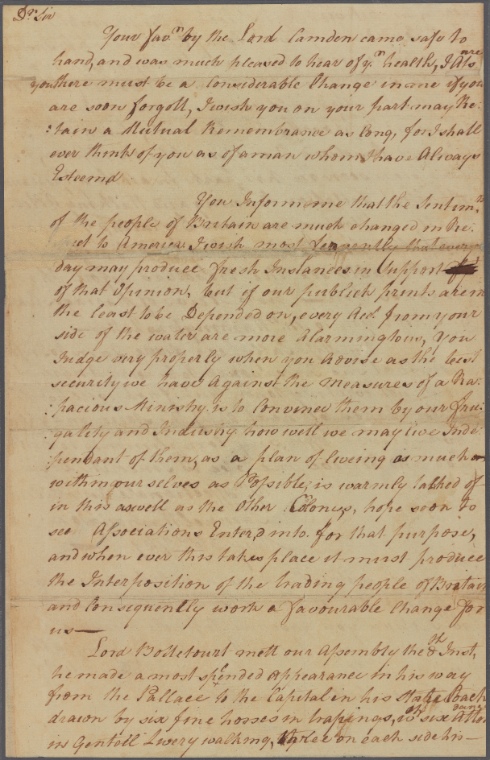 Dr Sir
Your favr by the Lord Camden came safe to
hand, and was much pleased to hear of yr health, I Assure
you there must be a Considerable Change in me if you
are soon forgott, I wish you on your part may Re-
:tain a Mutual Remembrance as long, for I shall
ever think of you as of a man whom I have Always
Esteemd
You Inform me that the Sentimts
of the people of Britain are much changed in Re:
:spect to America I wish most fervently that every
day may produce fresh Instances in Support
of that Opinion, but if our publick prints are in
the least to be Depended on, every Act from your
side of the water are more Alarming to us, You
Judge very properly when you Advise as the best
security we have Against the Measures of a Ra-
:pacious Ministry is to Convince them by our fru-
:gality and Industry how well we may live Inde
:pendant of them, as a plan of liveing as much
within ourselves as Possible, is warmly talked of
in this aswell as the Other Colonys, hope soon to
see Associations Enterd into for that purpose,
and when ever this takes place it must produce
the Interposition of the trading people of Britain
and Consequently work a favourable Change for
us—
Lord Bottetourt mett our Assembly the 8th Inst,
he made a most splended Appearance in his way
from the Pallace to the Capital in his State Coach
drawn by six fine horses in trapings, with six running
in Genteel Livery walking, three on each side his—